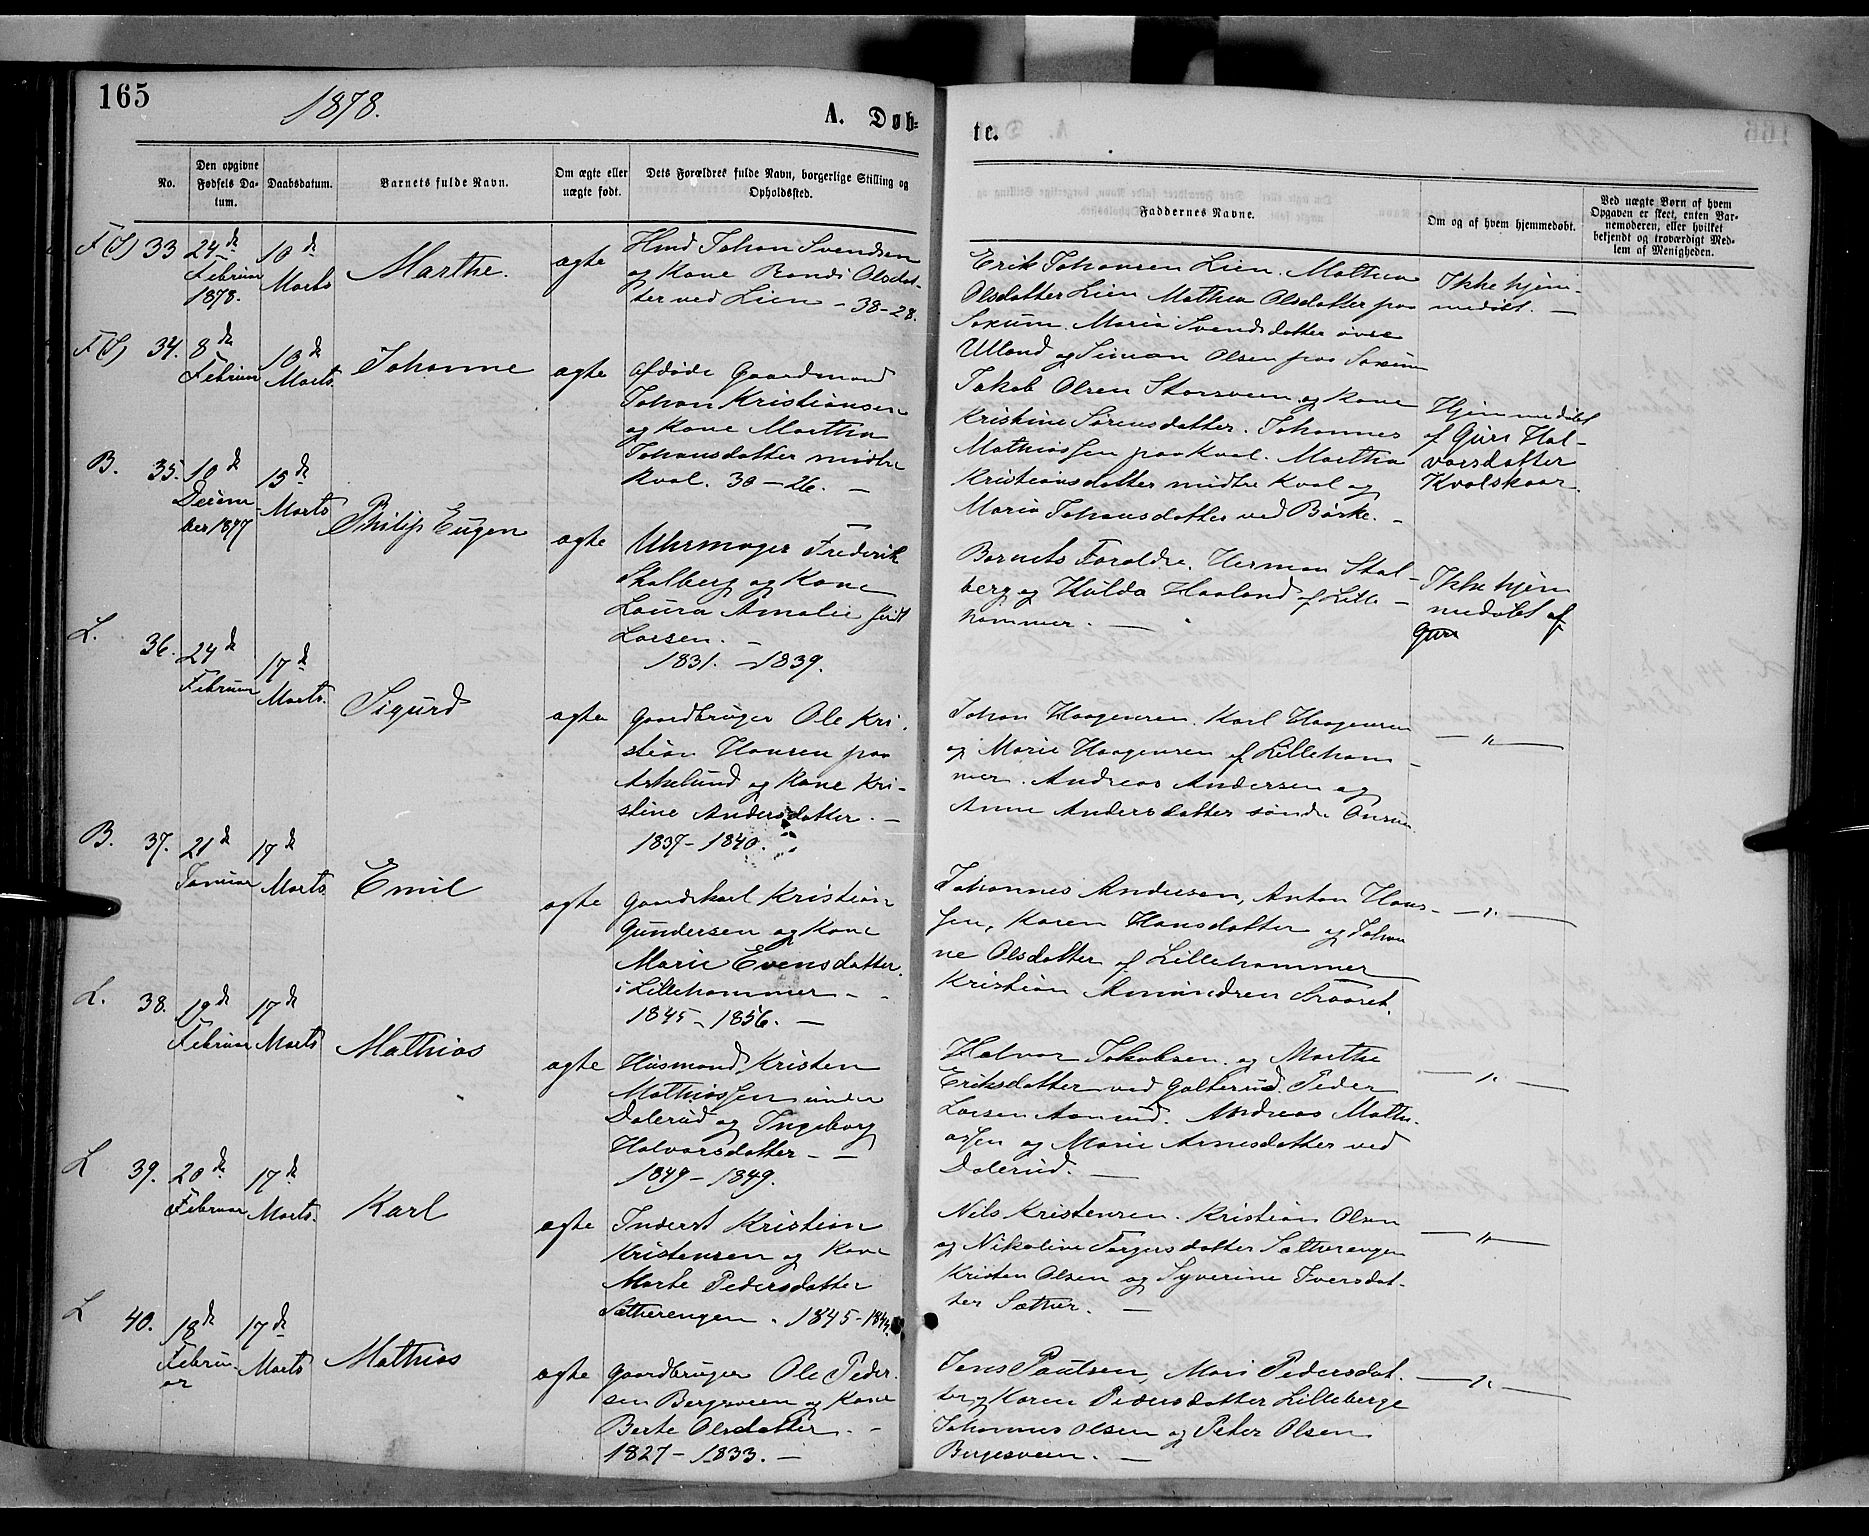 165
1878.
A. Døb-
te.
No.
Den opgivne
Fødsels Da-
tum.
Daabsdatum.
Barnets fulde Navn.
Om ægte eller
uægte født.
Dets Forældres fulde Navn, borgerlige Stilling og
Opholdssted.
Faddernes Navne.
Om og af hvem hjemmedøbt.
Ved uægte Børn af hvem
Opgaven er skeet, enten Bar-
nemoderen, eller hvilket
bekjendt og troværdigt Med-
lem af Menigheden.
F(S) 33
24de
Februar
1878.
10de
Marts
Marthe.
ægte
Hmd Johan Svendsen
og Kone Randi Olsdat-
ter ved Lien - 38-28.
Erik Johansen Lien. Mathea
Olsdatter Lien Mathea Olsdatter paa
Saxum. Maria Svendsdatter øvre
Ulland og Simen Olsen paa Saxum
Ikke hjem-
medøbt. —
F(S) 34.
8de
Februar
10de
Marts
Johanne
ægte
afdøde Gaardmand
Johan Kristiansen
og Kone Marthea
Johansdatter midtre
Kval. 30-26. —
Jakob Olsen Storsveen og Kone
Kristine Sørensdatter. Johannes
Mathiassen paa Kval. Marthea
Kristiansdatter midtre Kval og
Maria Johansdatter ved Børke. -
Hjemmedøbt
af Guri Hal-
vorsdatter
Kvalskaar.
B. 35.
10de
Decem-
ber 1877
15de
Marts
Philip Eugen
ægte
Uhrmager Frederik
Stalberg og Kone
Laura Amalie født
Larsen. —
1831. - 1839.
Barnets Forældre. Herman Stal-
berg og Hulda Haaland af Lille-
hammer. —
Ikke hjem
medøbt af
Guri
L. 36.
24de
Februar
17de
Marts.
Sigurd
ægte
Gaardbruger Ole Kri-
stian Hansen paa
Askelund og Kone Kri-
stine Andersdatter. —
1837- 1840.
Johan Haagensen. Karl Haagensen
og Marie Haagensen af Lilleham-
mer. Andreas Andersen og
Anne Andersdatter søndre
— " —
B. 37.
21de
Januar
17de
Marts
Emil
ægte
Gaardskarl Kristian
Gundersen og Kone
Marie Evensdatter
i Lillehammer - -
1845- 1856. —
Johannes Andersen, Anton Han-
sen, Karen Hansdatter og Johan
ne Olsdatter af Lillehammer
Kristian Amundsen
— " —
L. 38.
19de
Februar
17de
Marts
Mathias
ægte
Husmand Kristen
Mathiassen under
Dalerud og Ingeborg
Halvorsdatter - —
1849 - 1849.
Halvor Jakobsen og Marthe
Eriksdatter ved Galterud. Peder
Larsen Aarnud. Andreas Mathi-
assen og Marie Arnesdatter ved
Dalerud. —
— " —
L 39.
20de
Februar
17de
Marts.
Karl
ægte
Inderst Kristian
Kristensen og Kone
Marte Pedersdatter
Sætherengen. 1845-
Nils Kristensen. Kristian Olsen
og Nikoline Torgersdatter Sætherengen
Kristen Olsen og Syverine Iversdat-
ter Sæther. —
— " —
L 40.
18de
Febru-
ar
17de
Marts
Mathias
ægte
Gaardbruger Ole Peder-
sen Bergsveen og Kone
Berte Olsdatter. -
1827- 1833. —
Jens Paulsen, Mari Pedersdat-
ter og Karen Pedersdatter Lilleberge
Johannes Olsen og Peter Olsen
Bergesveen. —
— " —